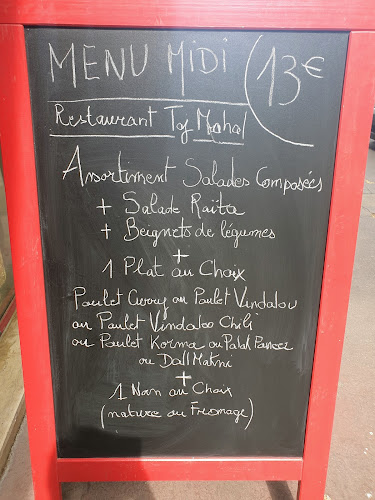 MENU MIDI 13€
Restaurant Taj Mahal
Assortiment Salades Composées
+ Salade Raïta
+ Beignets de légumes
+
1 Plat au Choix
Poulet Curry ou Poulet Vindalou
ou Poulet Vindaloo Chili
ou Poulet Korma ou Palak Paneer
ou Dall Makni
+
1 Nan au Choix
(nature ou Fromage)